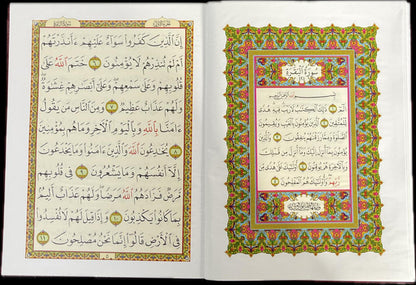 سُورَةُ البَقَرَةِ
بِسْمِ اللَّهِ الرَّحْمَٰنِ الرَّحِيمِ
الٓمٓ ١ ذَٰلِكَ ٱلْكِتَٰبُ لَا رَيْبَ فِيهِ هُدًى
لِّلْمُتَّقِينَ ٢ ٱلَّذِينَ يُؤْمِنُونَ بِٱلْغَيْبِ وَيُقِيمُونَ
ٱلصَّلَوٰةَ وَمِمَّا رَزَقْنَٰهُمْ يُنفِقُونَ ٣ وَٱلَّذِينَ
يُؤْمِنُونَ بِمَآ أُنزِلَ إِلَيْكَ وَمَآ أُنزِلَ مِن قَبْلِكَ
وَبِٱلْءَاخِرَةِ هُمْ يُوقِنُونَ ٤ أُو۟لَٰٓئِكَ عَلَىٰ هُدًى مِّن
رَّبِّهِمْ وَأُو۟لَٰٓئِكَ هُمُ ٱلْمُفْلِحُونَ ٥
إِنَّ ٱلَّذِينَ كَفَرُوا۟ سَوَآءٌ عَلَيْهِمْ ءَأَنذَرْتَهُمْ
أَمْ لَمْ تُنذِرْهُمْ لَا يُؤْمِنُونَ ٦ خَتَمَ ٱللَّهُ عَلَىٰ
قُلُوبِهِمْ وَعَلَىٰ سَمْعِهِمْ وَعَلَىٰٓ أَبْصَٰرِهِمْ غِشَٰوَةٌ
وَلَهُمْ عَذَابٌ عَظِيمٌ ٧ وَمِنَ ٱلنَّاسِ مَن يَقُولُ
ءَامَنَّا بِٱللَّهِ وَبِٱلْيَوْمِ ٱلْءَاخِرِ وَمَا هُم بِمُؤْمِنِينَ ٨
يُخَٰدِعُونَ ٱللَّهَ وَٱلَّذِينَ ءَامَنُوا۟ وَمَا يَخْدَعُونَ
إِلَّآ أَنفُسَهُمْ وَمَا يَشْعُرُونَ ٩ فِى قُلُوبِهِم
مَّرَضٌ فَزَادَهُمُ ٱللَّهُ مَرَضًا وَلَهُمْ عَذَابٌ أَلِيمٌۢ
بِمَا كَانُوا۟ يَكْذِبُونَ ١٠ وَإِذَا قِيلَ لَهُمْ لَا تُفْسِدُوا۟
فِى ٱلْأَرْضِ قَالُوٓا۟ إِنَّمَا نَحْنُ مُصْلِحُونَ ١١